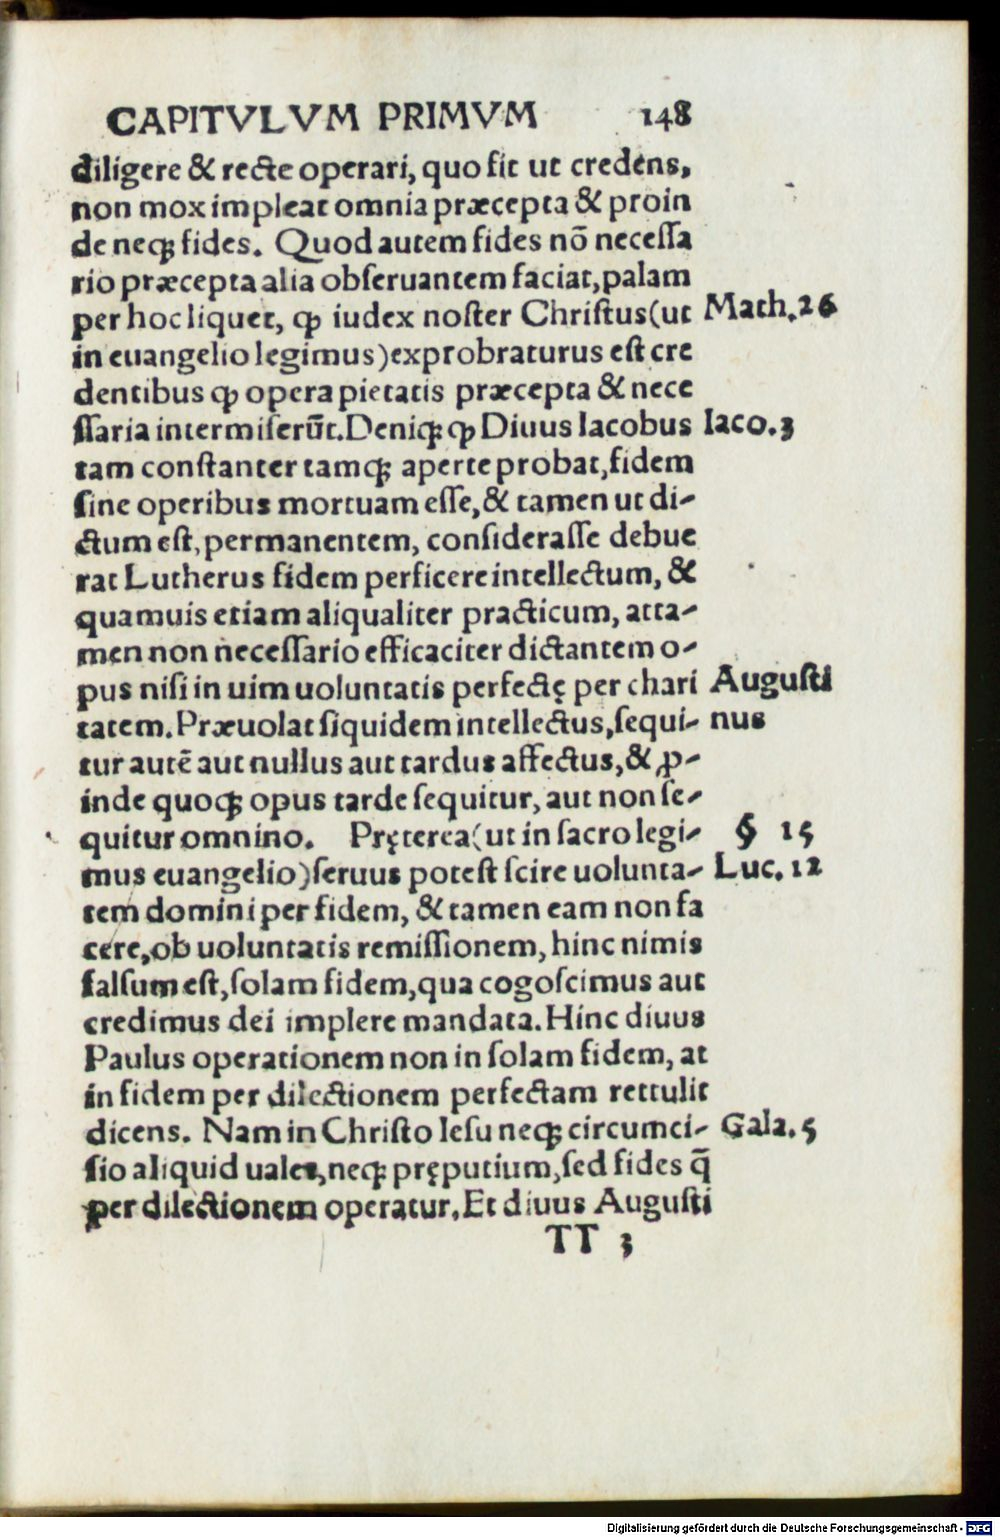 CAPITVLVM PRIMVM 148
diligere & recte operari, quo fit ut credens,
non mox impleat omnia præcepta & proin
de neqꝫ fides. Quod autem fides nõ necessa
rio præcepta alia obseruantem faciat, palam
per hoc liquet, ꝙ iudex noster Christus (ut Math. 26
in euangelio legimus) exprobraturus est cre
dentibus ꝙ opera pietatis præcepta & nece
ssaria intermiserũt. Deniqꝫ ꝙ Diuus Iacobus Iaco. 3
tam constanter tamqꝫ aperte probat, fidem
sine operibus mortuam esse, & tamen ut di-
ctum est, permanentem, considerasse debue
rat Lutherus fidem perficere intellectum, &
quamuis etiam aliqualiter practicum, atta-
men non necessario efficaciter dictantem o-
pus nisi in uim uoluntatis perfectę per chari Augusti
tatem. Præuolat siquidem intellectus, sequi- nus
tur autẽ aut nullus aut tardus affectus, & ꝓ-
inde quoqꝫ opus tarde sequitur, aut non se-
quitur omnino. Pręterea (ut in sacro legi- § 15
mus euangelio) seruus potest scire uolunta- Luc. 12
tem domini per fidem, & tamen eam non fa
cere, ob uoluntatis remissionem, hinc nimis
falsum est, solam fidem, qua cogoscimus aut
credimus dei implere mandata. Hinc diuus
Paulus operationem non in solam fidem, at
in fidem per dilectionem perfectam rettulit
dicens. Nam in Christo Iesu neqꝫ circumci- Gala. 5
sio aliquid ualet, neqꝫ pręputium, sed fides q̃
per dilectionem operatur. Et diuus Augusti
TT 3
Digitalisierung gefördert durch die Deutsche Forschungsgemeinschaft - DFG